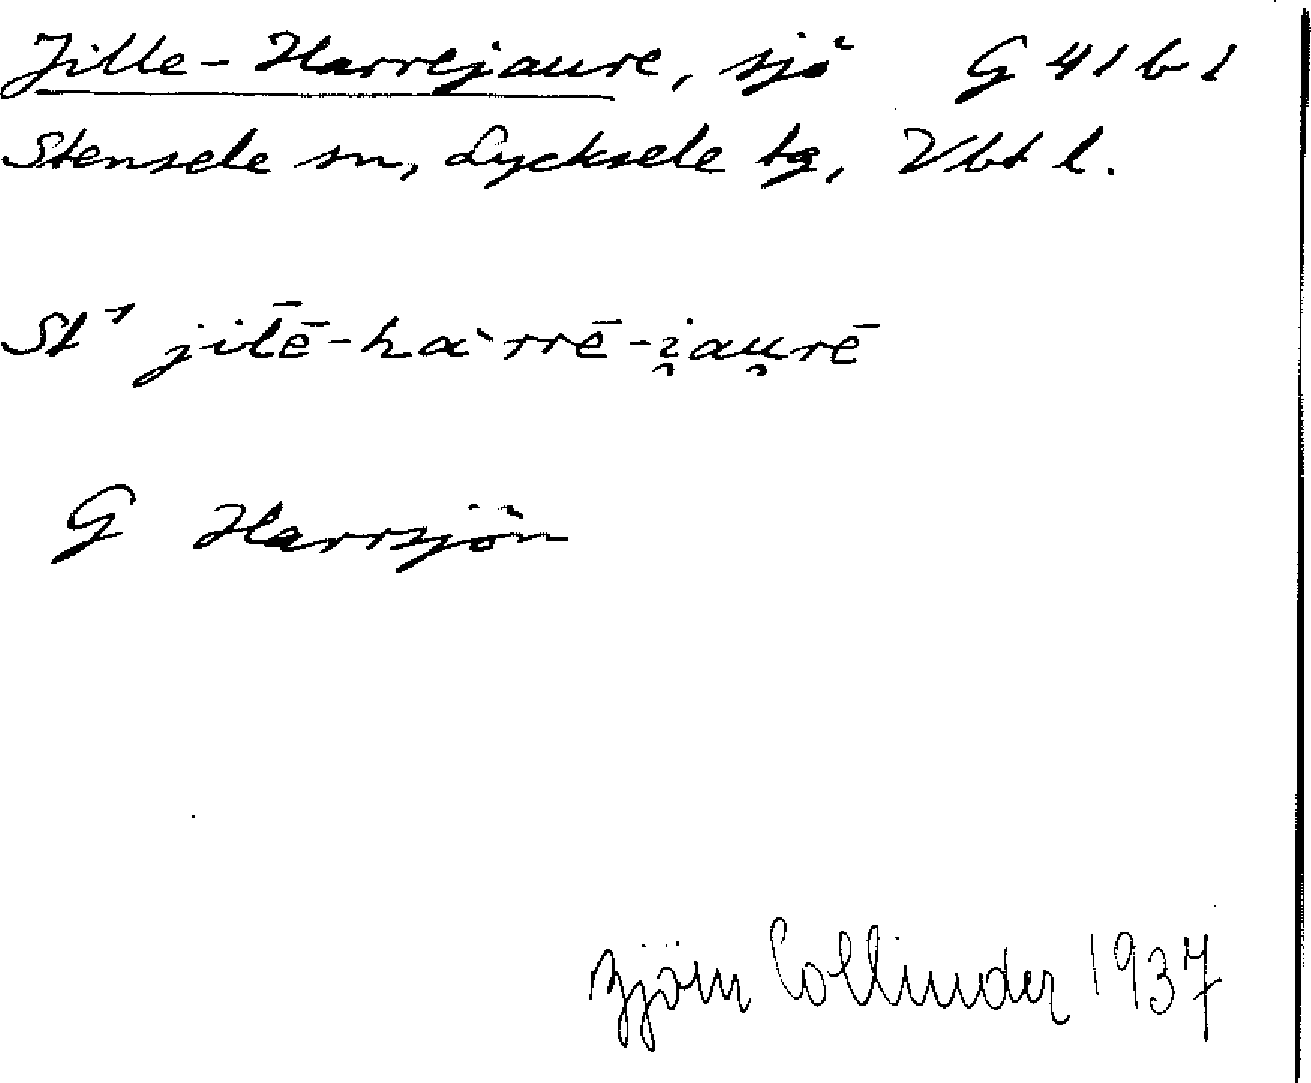 Jille-Harrejaure, sjö G 41 b 1
Stensele sn, Lycksele tg, Vbt l.
St¹ jil̄ē-hα`rrē-i̯au̯rē
G Harrsjön
Björn Collinder 1937